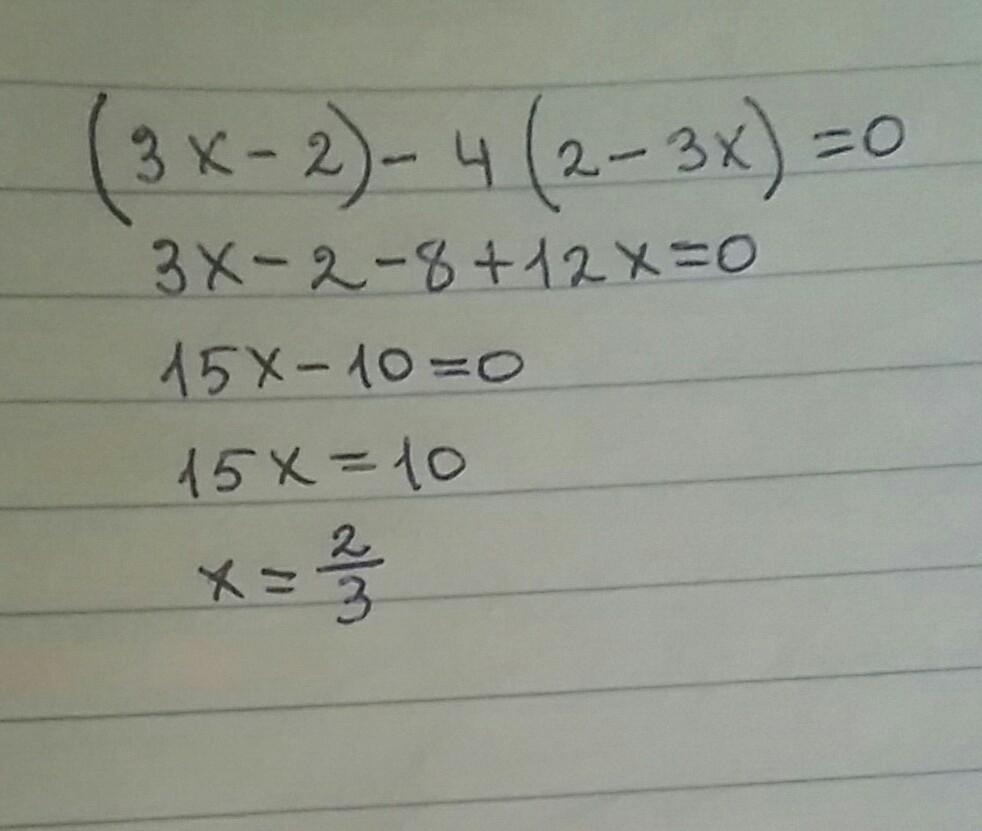 (3x-2)-4(2-3x)=0
3x-2-8+12x=0
15x-10=0
15x=10
x=2/3